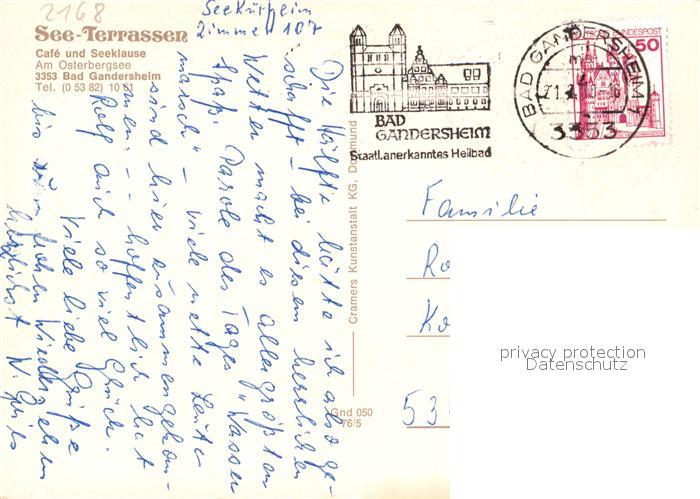 2168
Seekurheim
Zimmer 107
See-Terrassen
Café und Seeklause
Am Osterbergsee
3353 Bad Gandersheim
Tel. (0 53 82) 10 61
Die Hälfte hätte ich also ge-
schafft – bei diesem herrlichen
Wetter macht es allergrößten
Spaß. Parole des Tages „Wasser
marsch“ – viele nette Leute
sind hier zusammengekom-
men – – hoffentlich hat
Rolf auch so viel Glück.
Viele liebe Grüße
bis zum frohen Wiedersehen
herzlichst
BAD
GANDERSHEIM
Staatl. anerkanntes Heilbad
BAD GANDERSHEIM 1
3353
DEUTSCHE BUNDESPOST
50
Cramers Kunstanstalt KG, Dortmund
Gnd 050
76/5
Familie
Ro
Ko
53
privacy protection
Datenschutz